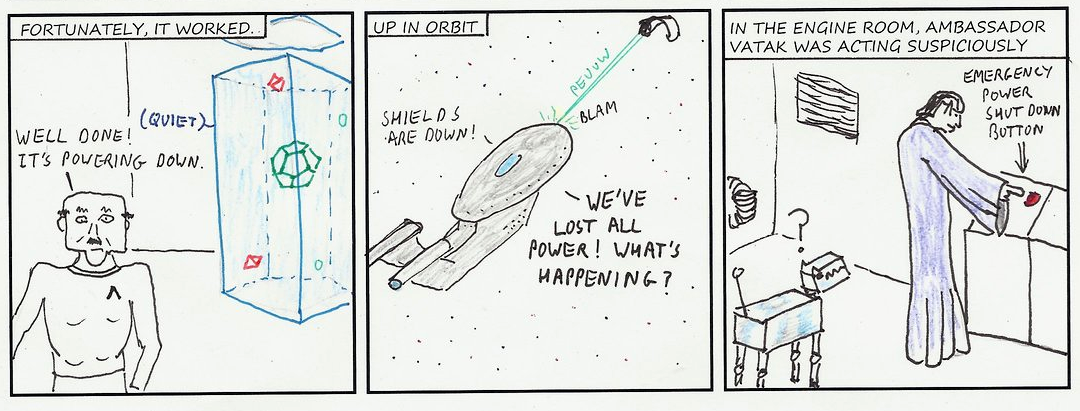 FORTUNATELY, IT WORKED..
WELL DONE!
IT'S POWERING DOWN.
(QUIET)
UP IN ORBIT
SHIELDS
ARE DOWN!
PEUUW
BLAM
WE'VE
LOST ALL
POWER! WHAT'S
HAPPENING?
IN THE ENGINE ROOM, AMBASSADOR
VATAK WAS ACTING SUSPICIOUSLY
EMERGENCY
POWER
SHUT DOWN
BUTTON
?